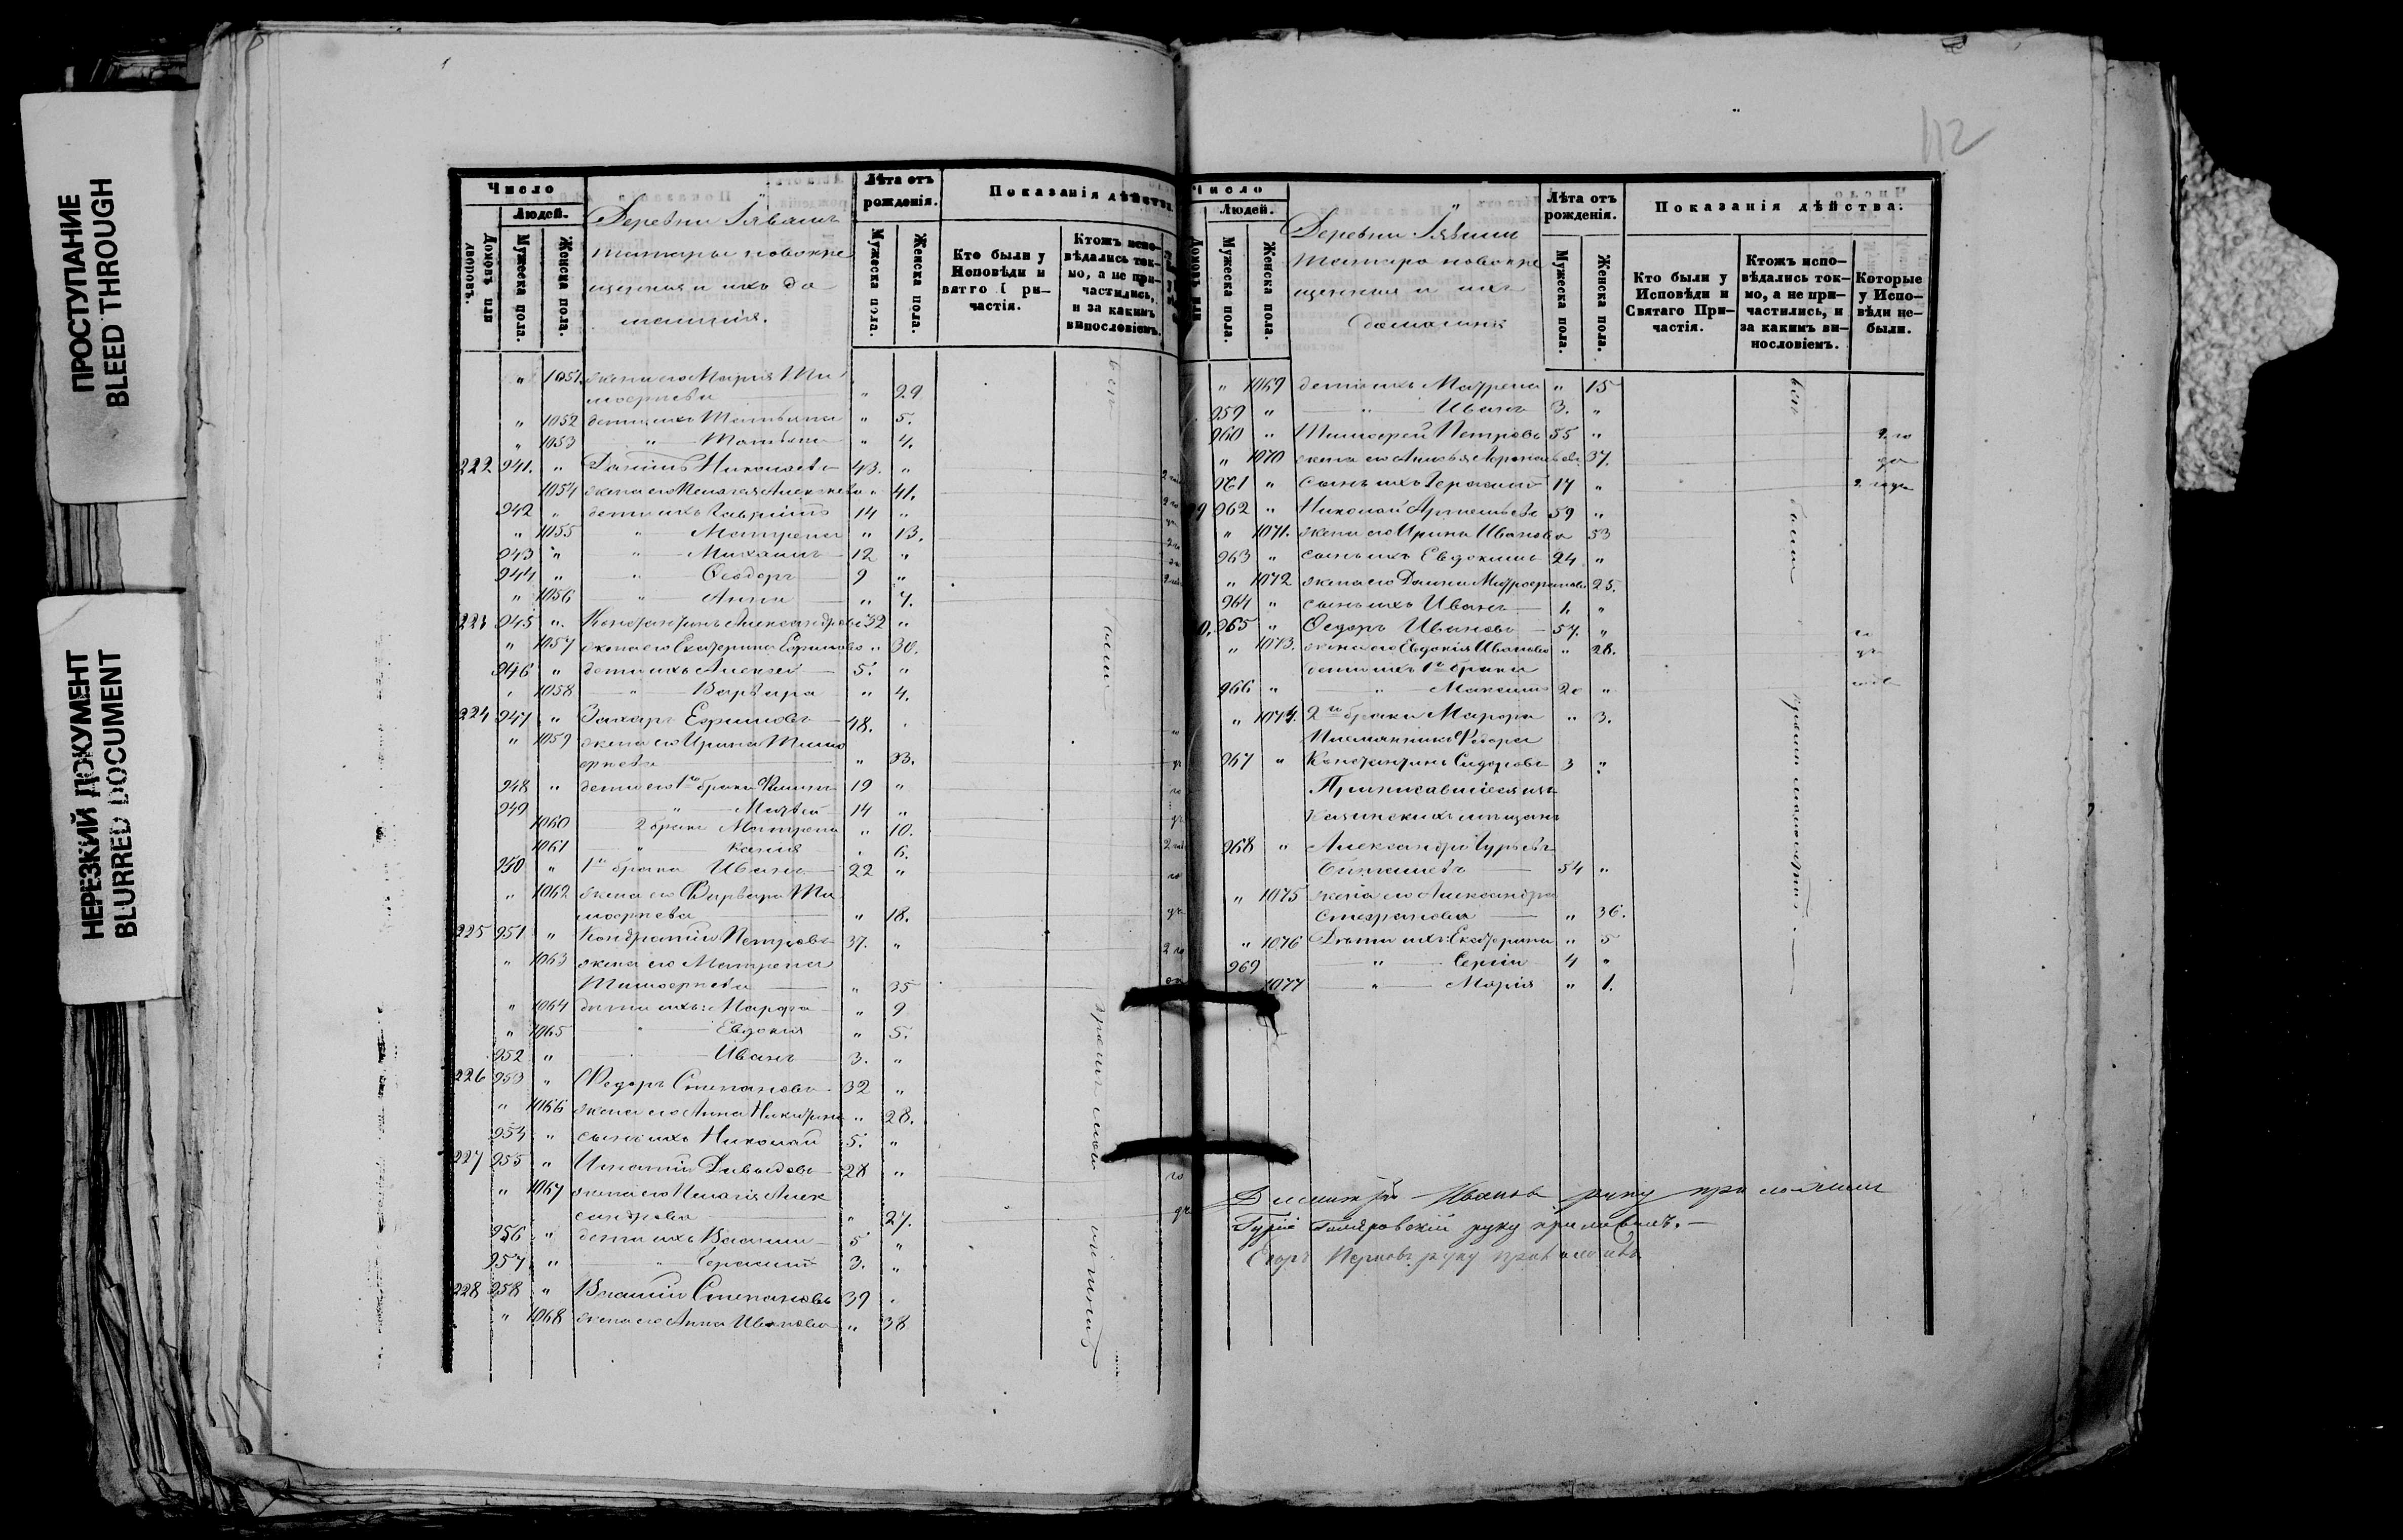 ПРОСТУПАНИЕ
BLEED THROUGH
НЕРЕЗКИЙ ДОКУМЕНТ
BLURRED DOCUMENT
112
Число
Людей.
Домовъ или дворовъ.
Мужеска пола.
Женска пола.
Деревни
татары новокре
щенныя и ихъ до
машнія.
Лѣта отъ рожденія.
Мужеска пола.
Женска пола.
Показанія дѣйства.
Кто были у Исповѣди и
частія.
Ктожъ испо-вѣдались ток-мо, а не при-частились, и за какимъ винословіемъ.
" 1051 жена его Марія Ти
мофеева " 29
" 1052 дети ихъ Татьяна " 5.
" 1053 " " 4.
222 941. " Данiилъ Николаевъ 43. "
1054 жена его Пелагея Алексеева " 41.
942 " дети ихъ Гавриилъ 14 "
" 1055 " Матрена " 13.
943 " " Михаилъ 12 "
944 " " Ѳеодоръ 9 "
" 1056 " Анна " 7.
223 945 " Константинъ Александровъ 32 "
" 1057 жена его Екатерина Ефимова " 30.
946 " дети ихъ Алексей 5. "
" 1058 " Варвара " 4.
224 947 " Захаръ Ефимовъ 48.
" 1059 жена его Ирина Тимо
феева " 33.
948 " дети его 1го брака 19 "
949 " Матвей 14 "
1060 2 брака Матрена " 10.
1061 " 6.
950 " 1го брака Иванъ 22 "
" 1062 жена его Варвара Ти
мофеева " 18.
225 951 " Кондратій Петровъ 37. "
" 1063 жена его Матрена
Тимофеева " 35
" 1064 дети ихъ: Марфа " 9
" 1065 " Евдокия " 5.
952 " Иванъ 3. "
226 953 " Федоръ Степановъ 32 "
" 1066 жена его Анна Никитина " 28.
954 " сынъ ихъ Николай 5. "
227 955 " Игнатій Давыдовъ 28 "
" 1067 жена его Пелагія Алек
сандрова " 27.
956 " дети ихъ Василий 5 "
957 " " Герасимъ 3. "
228 958 " Василій Степановъ 39
" 1068 жена его Анна Иванова " 38
все
были
Число
Людей.
Мужеска пола.
Женска пола.
Деревни
татаро новокре
щенныя и ихъ
домашнія
Лѣта отъ рожденія.
Мужеска пола.
Женска пола.
Показанія дѣйства.
Кто были у Исповѣди и Святаго При-частія.
Ктожъ испо-вѣдались ток-мо, а не при-частились, и за какимъ ви-нословіемъ.
Которые у Испо-вѣди не-были.
" 1069 дети ихъ Матрена " 15
959 " " Иванъ 3. "
960 " Тимофей Петровъ 55 "
" 1070 жена его 37.
961 " Сынъ ихъ Герасимъ 17 "
962 " Николай Артемьевъ 59 "
" 1071. жена его Ирина Иванова 53
963 " сынъ ихъ Евдокимъ 24 "
" 1072 жена его Митрофанова 25.
964 " сынъ ихъ Иванъ 1. "
965 " Ѳедоръ Ивановъ 57. "
" 1073. жена его Евдокія Иванова " 28.
дети ихъ 1го брака
966 " " Максимъ 20 "
" 1074. 2го брака Марфа " 3.
Племянникъ Федора
967 " Константинъ Сидоровъ 3 "
Приписавшіеся изъ
Казанскихъ мещанъ
968 " Александръ Гурьевъ
54 "
" 1075 жена его Александра
Стефанова " 36.
" 1076 Дети ихъ: Екатерина " 5
969 " Сергій 4 "
1077 " Марія " 1.
все
были
Ивановъ руку приложилъ
Гурій руку приложилъ.
Егоръ руку приложилъ